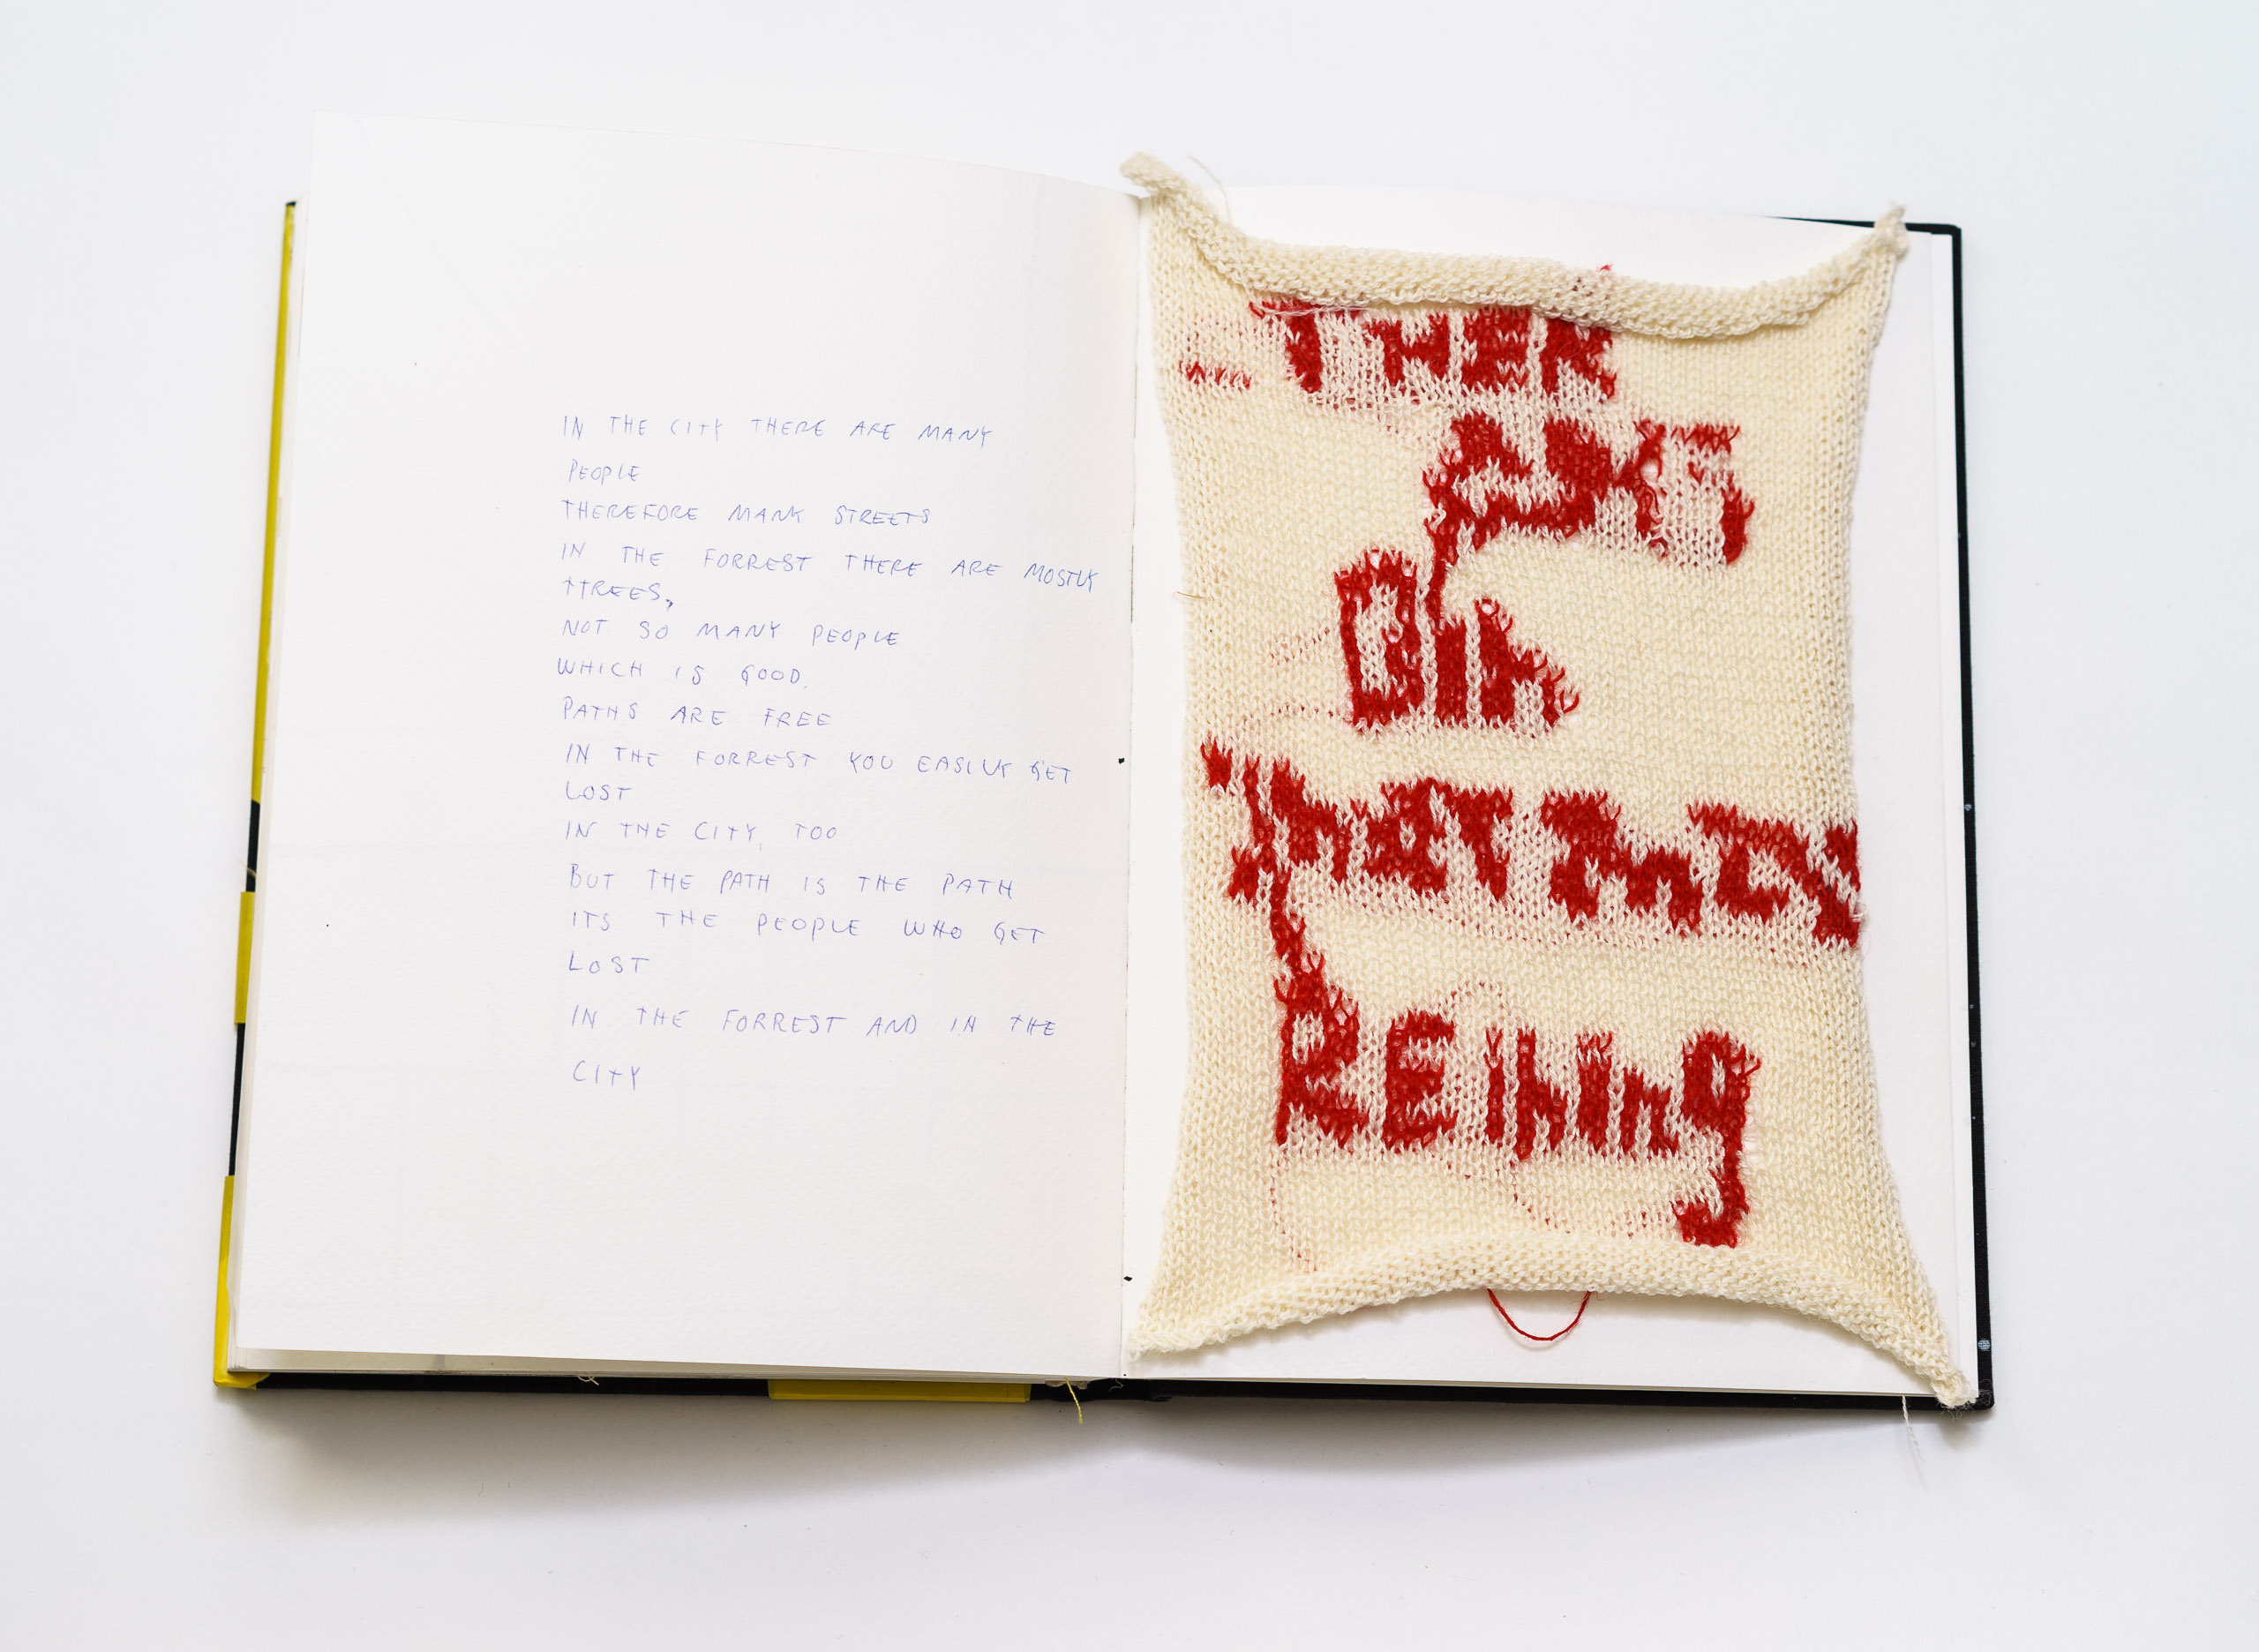 IN THE CITY THERE ARE MANY
PEOPLE
THEREFORE MANY STREETS
IN THE FORREST THERE ARE MOSTLY
TTREES,
NOT SO MANY PEOPLE
WHICH IS GOOD.
PATHS ARE FREE
IN THE FORREST YOU EASILY GET
LOST
IN THE CITY, TOO
BUT THE PATH IS THE PATH
ITS THE PEOPLE WHO GET
LOST
IN THE FORREST AND IN THE
CITY
THER